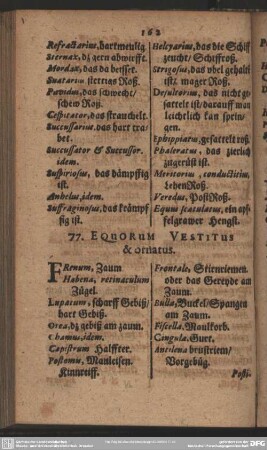 162
Refractarius, hartmeulig.
Sternax, dz gern abwirfft.
Mordax, das da beisset.
Suatarius stettigs Roß.
Pavidus, das schwecht/
schew Roß.
Cespitator, das strauchelt.
Succussarius, das hart tra-
bet.
Succussator & Succussor.
idem.
Suspiriosus, das dämpffig
ist.
Anhelus, idem.
Suffraginosus, das krämpf
fig ist.
Helcyarius, das die Schiff
zeucht/ Schiffroß.
Strigosus, das übel gehaltẽ
ist/ mager Roß.
Desultorius, das nicht ge-
sattelt ist/ darauff man
leichtlich kan sprin-
gen.
Ephippiatus, gesattelt roß
Phaleratus, das zierlich
zugerüst ist.
Meritorius, conductitius,
LehenRoß.
Veredus, PostRoß.
Equus scutulatus, ein apf-
felgrawer Hengst.
77. EQUORUM VESTITUS
& ornatus.
FRenum, Zaum
Habena, retinaculum
Zügel.
Lupatum, scharff Gebiß/
hart Gebiß.
Orea, dz gebiß am zaum.
Chamus, idem.
Capistrum Halffter.
Postomis, Mauleisen.
Kinnreiff.
Frontale, Stirnriemen
oder das Gereyde am
Zaum.
Bulla, Buckel/ Spangen
am Zaum.
Fiscella, Maulkorb.
Cingula, Gurt.
Antilena brustriem/
Vorgebüg.
Posti-